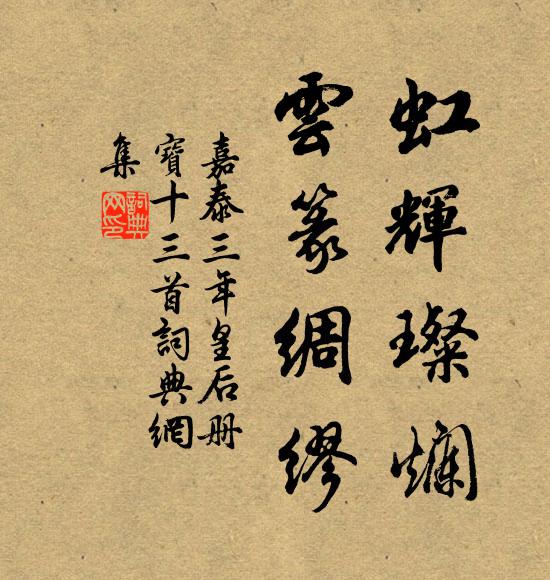 虹輝璨斕
雲篆綢繆
嘉泰三年皇后册
寶十三首詞典網
集
詞典網印